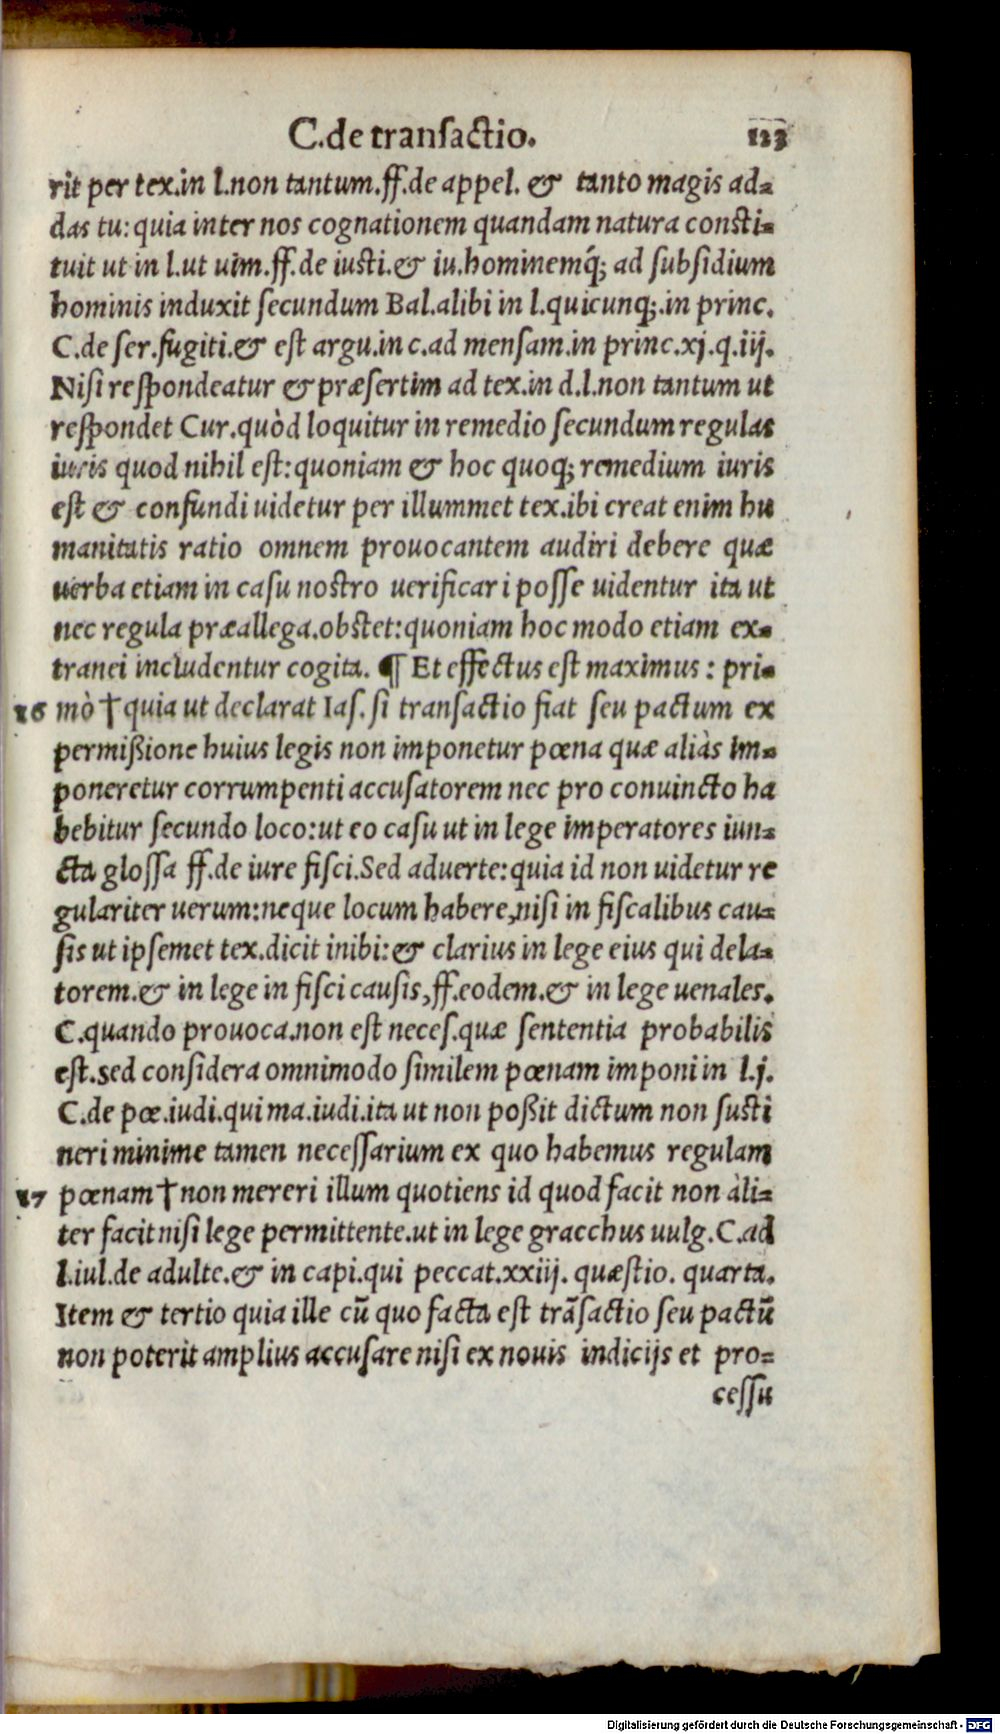 C.de transactio. 123
rit per tex.in l.non tantum.ff.de appel. & tanto magis ad=
das tu: quia inter nos cognationem quandam natura consti=
tuit ut in l.ut uim.ff.de iusti.& iu.hominemq́; ad subsidium
hominis induxit secundum Bal.alibi in l.quicunq;.in princ.
C.de ser.fugiti.& est argu.in c.ad mensam.in princ.xj.q.iij.
Nisi respondeatur & præsertim ad tex.in d.l.non tantum ut
respondet Cur.quòd loquitur in remedio secundum regulas
iuris quod nihil est: quoniam & hoc quoq; remedium iuris
est & confundi uidetur per illummet tex.ibi creat enim hu
manitatis ratio omnem prouocantem audiri debere quæ
uerba etiam in casu nostro uerificari posse uidentur ita ut
nec regula præallega.obstet: quoniam hoc modo etiam ex=
tranei includentur cogita. ¶ Et effectus est maximus : pri=
16 mò † quia ut declarat Ias. si transactio fiat seu pactum ex
permißione huius legis non imponetur pœna quæ aliàs im=
poneretur corrumpenti accusatorem nec pro conuincto ha
bebitur secundo loco: ut eo casu ut in lege imperatores iun=
cta glossa ff.de iure fisci.Sed aduerte: quia id non uidetur re
gulariter uerum: neque locum habere,nisi in fiscalibus cau=
sis ut ipsemet tex.dicit inibi: & clarius in lege eius qui dela=
torem.& in lege in fisci causis,ff.eodem.& in lege uenales.
C.quando prouoca.non est neces.quæ sententia probabilis
est.sed considera omnimodo similem pœnam imponi in l.j.
C.de pœ.iudi.qui ma.iudi.ita ut non poßit dictum non susti
neri minime tamen necessarium ex quo habemus regulam
17 pœnam † non mereri illum quotiens id quod facit non àli=
ter facit nisi lege permittente.ut in lege gracchus uulg.C.ad
l.iul.de adulte.& in capi.qui peccat.xxiij. quæstio. quarta.
Item & tertio quia ille cū quo facta est trāsactio seu pactū
non poterit amplius accusare nisi ex nouis indicijs et pro=
cessu
Digitalisierung gefördert durch die Deutsche Forschungsgemeinschaft - DFG